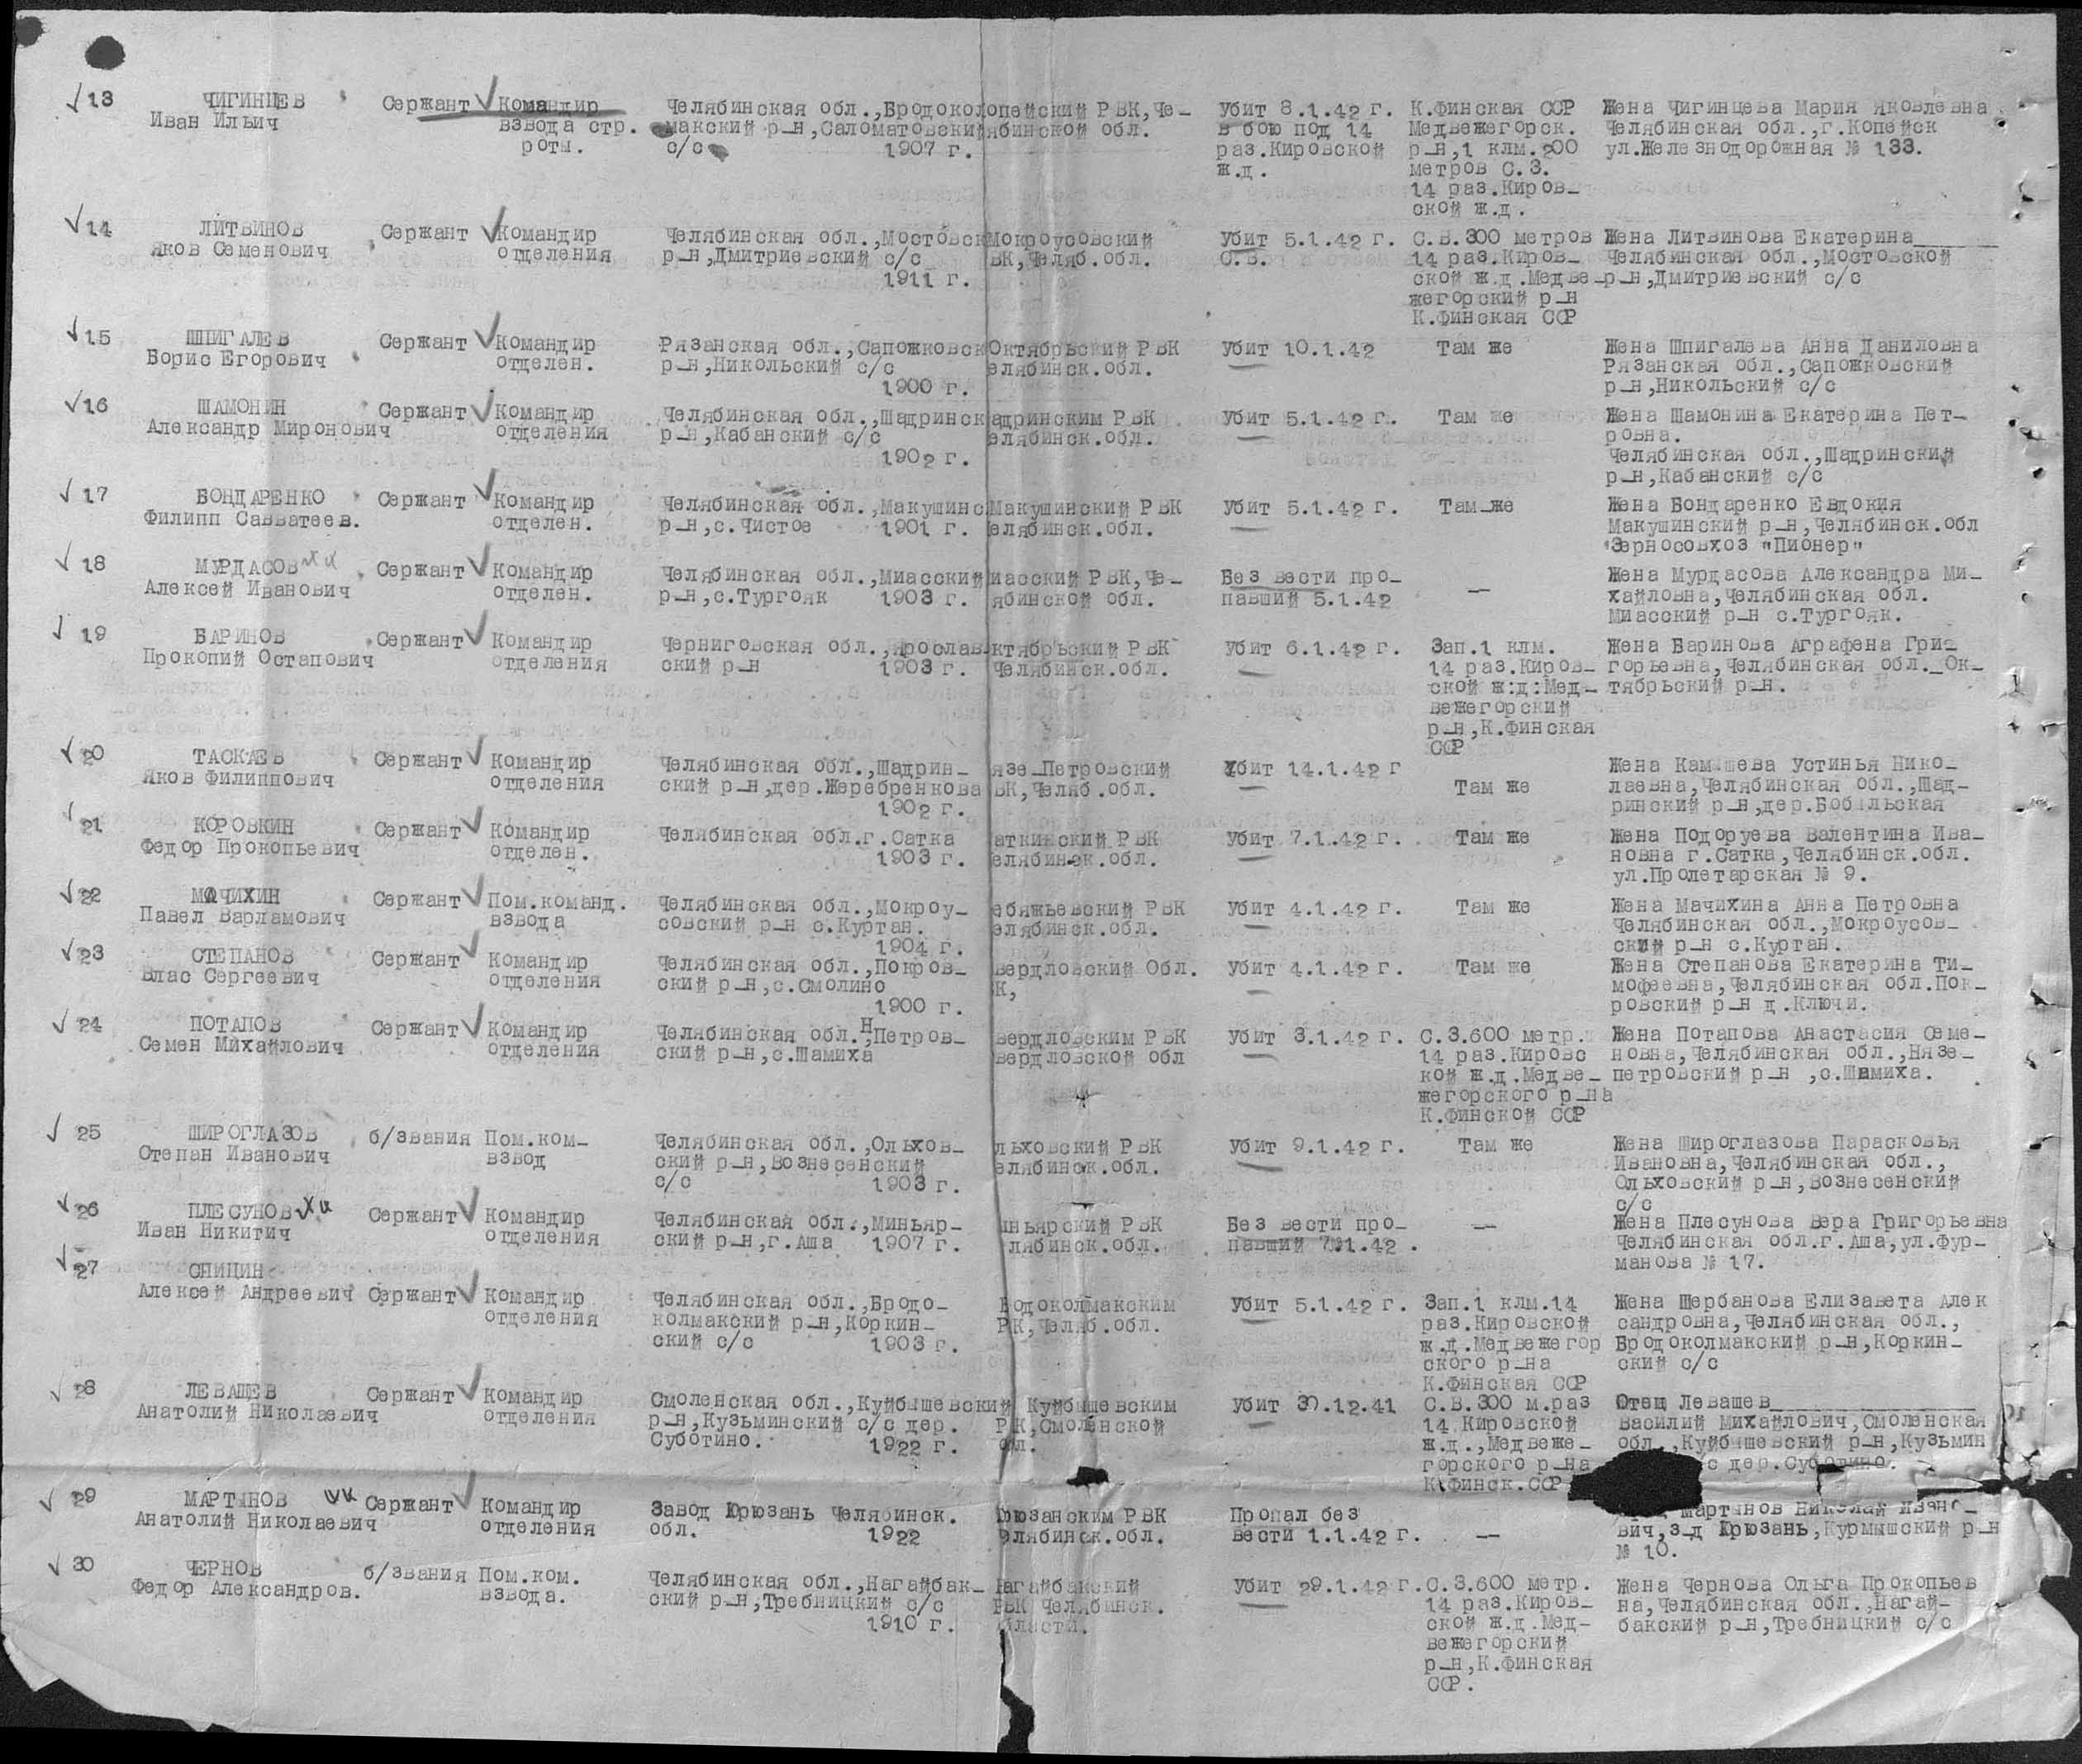 13 ЧИГИНЦЕВ Сержант Командир Челябинская обл.,Бродокол опейский РВК,Че- Убит 8.1.42 г. К.Финская ССР Жена Чигинцева Мария Яковлевна
Иван Ильич взвода стр. макский р-н,Саломатовский ябинской обл. в бою под 14 Медвежегорск. Челябинская обл.,г.Копейск
роты. с/с 1907 г. раз.Кировской р-н,1 клм.200 ул.Железнодорожная № 133.
ж.д. метров С.З.
14 раз.Киров-
ской ж.д.
14 ЛИТВИНОВ Сержант Командир Челябинская обл.,Мостовск Мокроусовский Убит 5.1.42 г. С.В.300 метров Жена Литвинова Екатерина
Яков Семенович отделения р-н,Дмитриевский с/с ВК,Челяб.обл. С.В. 14 раз.Киров- Челябинская обл.,Мостовской
1911 г. ской ж.д.Медве- р-н,Дмитриевский с/с
жегорский р-н
К.Финская ССР
15 ШПИГАЛЕВ Сержант Командир Рязанская обл.,Сапожковск Октябрьский РВК Убит 10.1.42 Там же Жена Шпигалева Анна Даниловна
Борис Егорович отделен. р-н,Никольский с/с елябинск.обл. Рязанская обл.,Сапожковский
1900 г. р-н,Никольский с/с
16 ШАМОНИН Сержант Командир Челябинская обл.,Шадринск адринским РВК Убит 5.1.42 г. Там же Жена Шамонина Екатерина Пет-
Александр Миронович отделения р-н,Кабанский с/с елябинск.обл. ровна.
1902 г. Челябинская обл.,Шадринский
р-н,Кабанский с/с
17 БОНДАРЕНКО Сержант Командир Челябинская обл.,Макушинс Макушинский РВК Убит 5.1.42 г. Там-же Жена Бондаренко Евдокия
Филипп Савватеев. отделен. р-н,с.Чистое 1901 г. елябинск.обл. Макушинский р-н,Челябинск.обл
Зерносовхоз "Пионер"
18 МУРДАСОВ Сержант Командир Челябинская обл.,Миасский иасский РВК,Че- Без вести про- — Жена Мурдасова Александра Ми-
Алексей Иванович отделен. р-н,с.Тургояк 1903 г. ябинской обл. павший 5.1.42 хайловна,Челябинская обл.
Миасский р-н с.Тургояк.
19 БАРИНОВ Сержант Командир Черниговская обл.,Ярослав ктябрьский РВК Убит 6.1.42 г. Зап.1 клм. Жена Баринова Аграфена Гри-
Прокопий Остапович отделения ский р-н 1903 г. Челябинск.обл. 14 раз.Киров- горьевна,Челябинская обл._Ок-
ской ж:д:Мед- тябрьский р-н.
вежегорский
р-н,К.Финская
ССР
20 ТАСКАЕВ Сержант Командир Челябинская обл.,Шадрин- язе-Петровский Убит 14.1.42 г Жена Камышева Устинья Нико-
Яков Филиппович отделения ский р-н,дер.Жеребренкова ВК,Челяб.обл. Там же лаевна,Челябинская обл.,Шад-
1902 г. ринский р-н,дер.Бобыльская
21 КОРОВКИН Сержант Командир Челябинская обл.г.Сатка аткинский РВК Убит 7.1.42 г. Там же Жена Подоруева Валентина Ива-
Федор Прокопьевич отделен. 1903 г. елябинск.обл. новна г.Сатка,Челябинск.обл.
ул.Пролетарская № 9.
22 МАЧИХИН Сержант Пом.команд. Челябинская обл.,Мокроу- ебяжьевский РВК Убит 4.1.42 г. Там же Жена Мачихина Анна Петровна
Павел Варламович взвода совский р-н с.Куртан. елябинск.обл. Челябинская обл.,Мокроусов-
1904 г. ский р-н с.Куртан.
23 СТЕПАНОВ Сержант Командир Челябинская обл.,Покров- вердловский Обл. Убит 4.1.42 г. Там же Жена Степанова Екатерина Ти-
Влас Сергеевич отделения ский р-н,с.Смолино К, мофеевна,Челябинская обл.Пок-
1900 г. ровский р-н д.Ключи.
24 ПОТАПОВ Сержант Командир Челябинская обл.,НПетров- вердловским РВК Убит 3.1.42 г. С.З.600 метр. Жена Потапова Анастасия Семе-
Семен Михайлович отделения ский р-н,с.Шамиха вердловской обл 14 раз.Кировс новна,Челябинская обл.,Нязе-
кой ж.д.Медве- петровский р-н ,с.Шамиха.
жегорского р-на
К.Финской ССР
25 ШИРОГЛАЗОВ б/звания Пом.ком- Челябинская обл.,Ольхов- льховский РВК Убит 9.1.42 г. Там же Жена Широглазова Парасковья
Степан Иванович взвод ский р-н,Вознесенский елябинск.обл. Ивановна,Челябинская обл.,
с/с 1903 г. Ольховский р-н,Вознесенский
с/с
26 ПЛЕСУНОВ Сержант Командир Челябинская обл.,Миньяр- иньярский РВК Без вести про- — Жена Плесунова Вера Григорьевна
Иван Никитич отделения ский р-н,г.Аша 1907 г. лябинск.обл. павший 7.1.42 . Челябинская обл.г.Аша,ул.Фур-
манова № 17.
27 СНИЦИН
Алексей Андреевич Сержант Командир Челябинская обл.,Бродо- родоколмакским Убит 5.1.42 г. Зап.1 клм.14 Жена Шербанова Елизавета Алек
отделения колмакский р-н,Коркин- РК,Челяб.обл. раз.Кировской сандровна,Челябинская обл.,
ский с/с 1903 г. ж.д.Медвежегор Бродоколмакский р-н,Коркин-
ского р-на ский с/с
К.Финская ССР
28 ЛЕВАШЕВ Сержант Командир Смоленская обл.,Куйбышевский Куйбышевским Убит 30.12.41 С.В.300 м.раз Отец Левашев
Анатолий Николаевич отделения р-н,Кузьминский с/с дер. РК,Смоленской 14 Кировской Василий Михайлович,Смоленская
Суботино. 1922 г. обл. ж.д.,Медвеже- обл.,Куйбышевский р-н,Кузьмин
горского р-на с дер.Суботино.
К.Финск.ССР
29 МАРТЫНОВ Сержант Командир Завод Юрюзань Челябинск. Юрюзанским РВК Пропал без Мартынов Николай Ивано-
Анатолий Николаевич отделения обл. 1922 елябинск.обл. вести 1.1.42 г. — вич,з-д Юрюзань,Курмышский р-н
№ 10.
30 ЧЕРНОВ б/звания Пом.ком. Челябинская обл.,Нагайбак- Нагайбакский Убит 29.1.42 г. С.З.600 метр. Жена Чернова Ольга Прокопьев
Федор Александров. взвода. ский р-н,Требницкий с/с РВК Челябинск. 14 раз.Киров- на,Челябинская обл.,Нагай-
1910 г. бласти. ской ж.д.Мед- бакский р-н,Требницкий с/с
вежегорский
р-н,К.Финская
ССР.